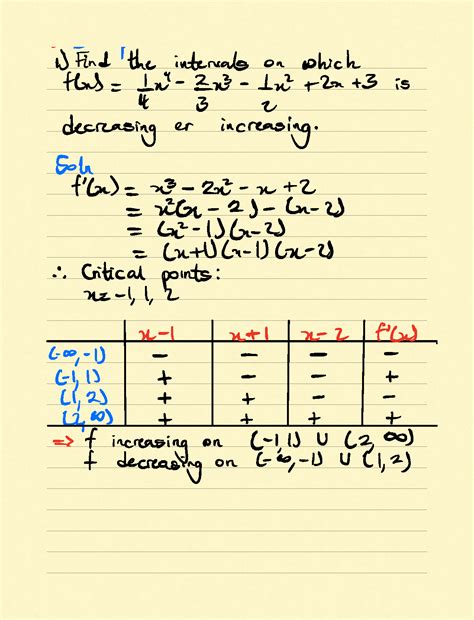 1) Find the intervals on which
f(x) = 1/4 x⁴ - 2/3 x³ - 1/2 x² + 2x + 3 is
decreasing or increasing.
Soln
f'(x) = x³ - 2x² - x + 2
= x²(x - 2) - (x - 2)
= (x² - 1)(x - 2)
= (x+1)(x-1)(x-2)
∴ Critical points:
x = -1, 1, 2
x-1 x+1 x-2 f'(x)
(-∞, -1) - - - -
(-1, 1) + - - +
(1, 2) + + - -
(2, ∞) + + + +
⇒ f increasing on (-1, 1) ∪ (2, ∞)
f decreasing on (-∞, -1) ∪ (1, 2)